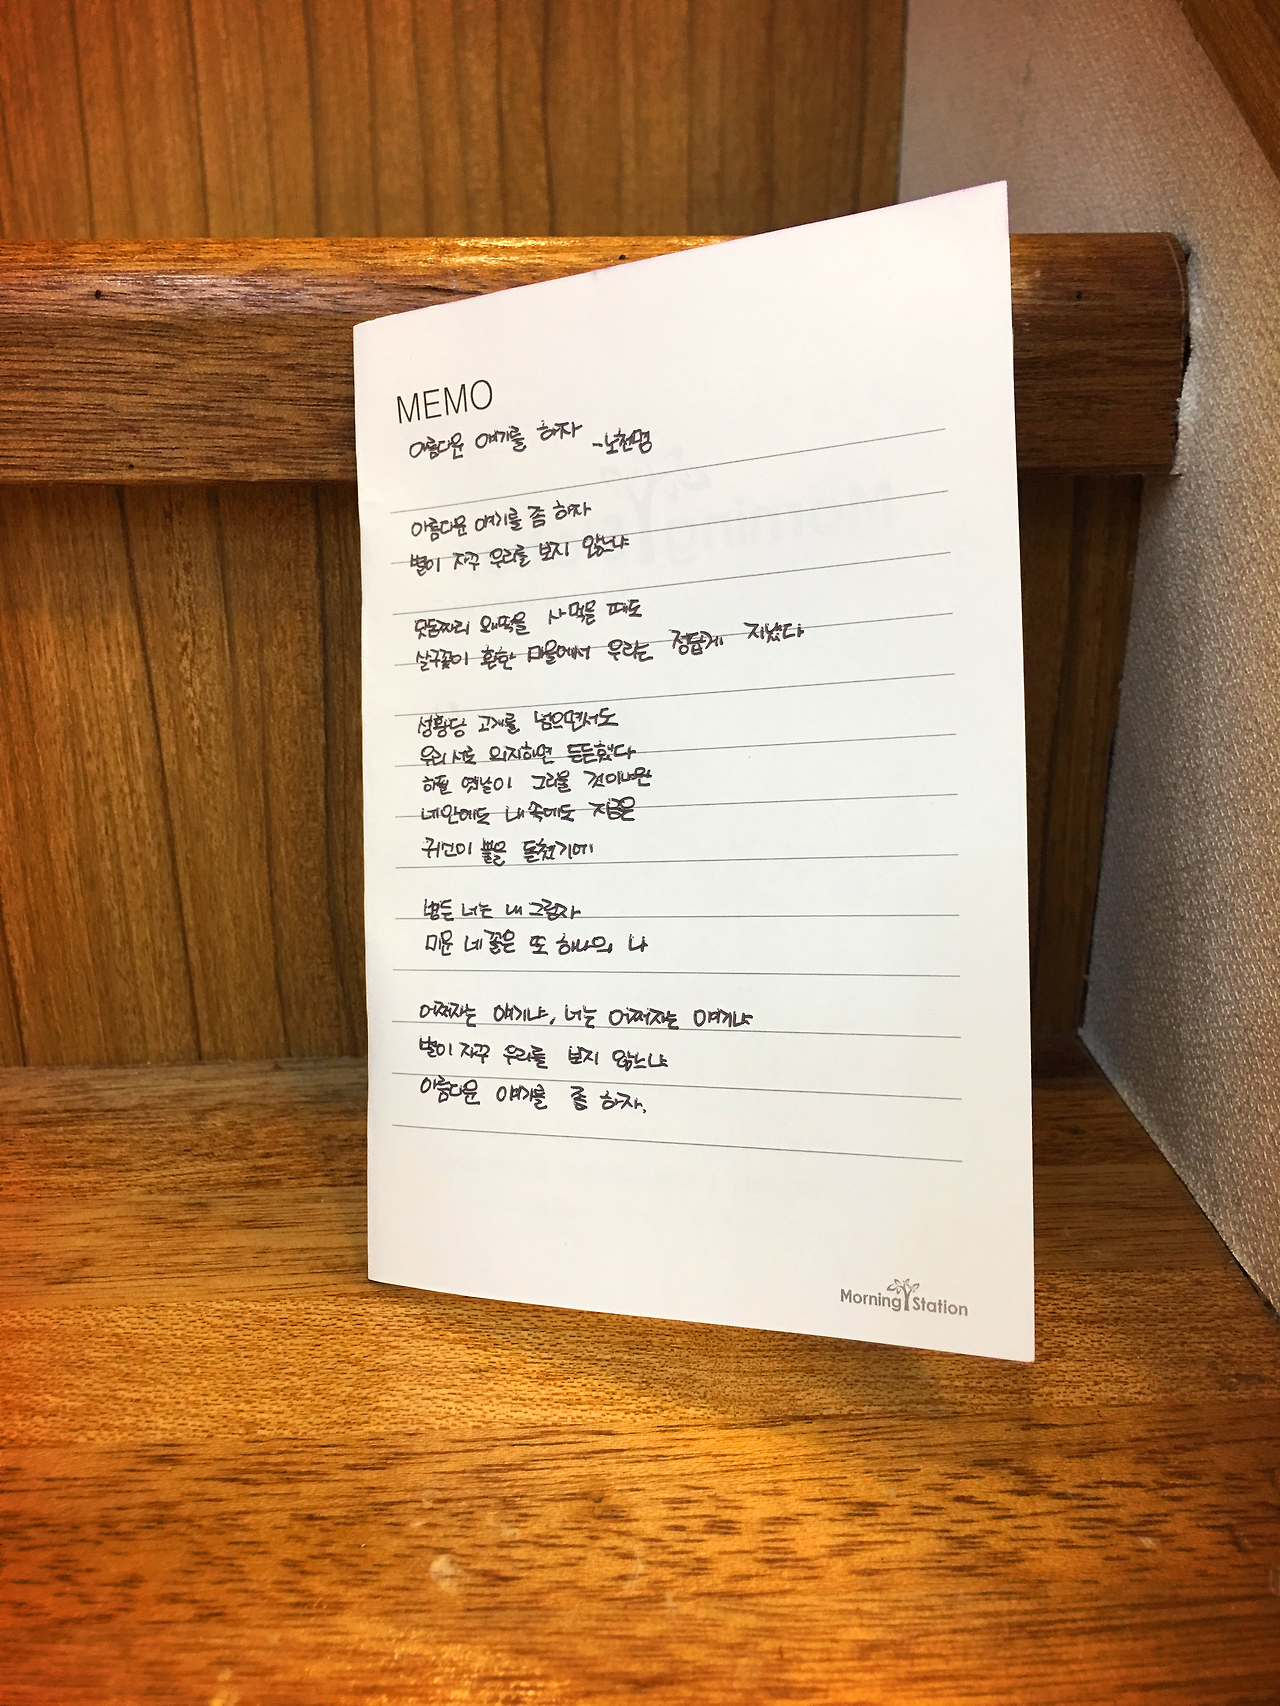 MEMO
아름다운 얘기를 하자 -노천명
아름다운 얘기를 좀 하자
별이 자꾸 우리를 보지 않느냐
닷돈짜리 왜떡을 사먹을 때도
살구꽃이 환한 마을에서 우리는 정답게 지냈다
성황당 고개를 넘으면서도
우리 서로 의지하면 든든했다
하필 옛날이 그리울 것이냐만
네 안에도 내 속에도 지금은
귀신이 뿔을 돋쳤기에
병든 너는 내 그림자
미운 네 꼴은 또 하나의 나
어쩌자는 얘기냐, 너는 어쩌자는 얘기냐
별이 자꾸 우리를 보지 않느냐
아름다운 얘기를 좀 하자.
Morning Station